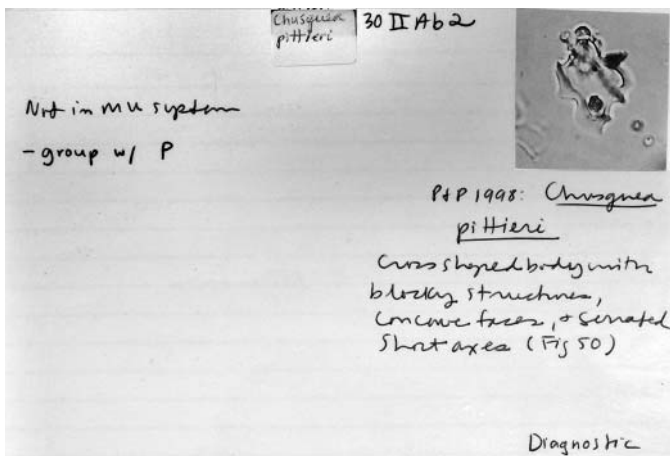 Chusquea
pittieri
30 II Ab2
Not in MU system
- group w/ P
P+P 1998: Chusquea
pittieri
Cross shaped body with
blocky structures,
concave faces, + serrated
short axes (Fig 50)
Diagnostic